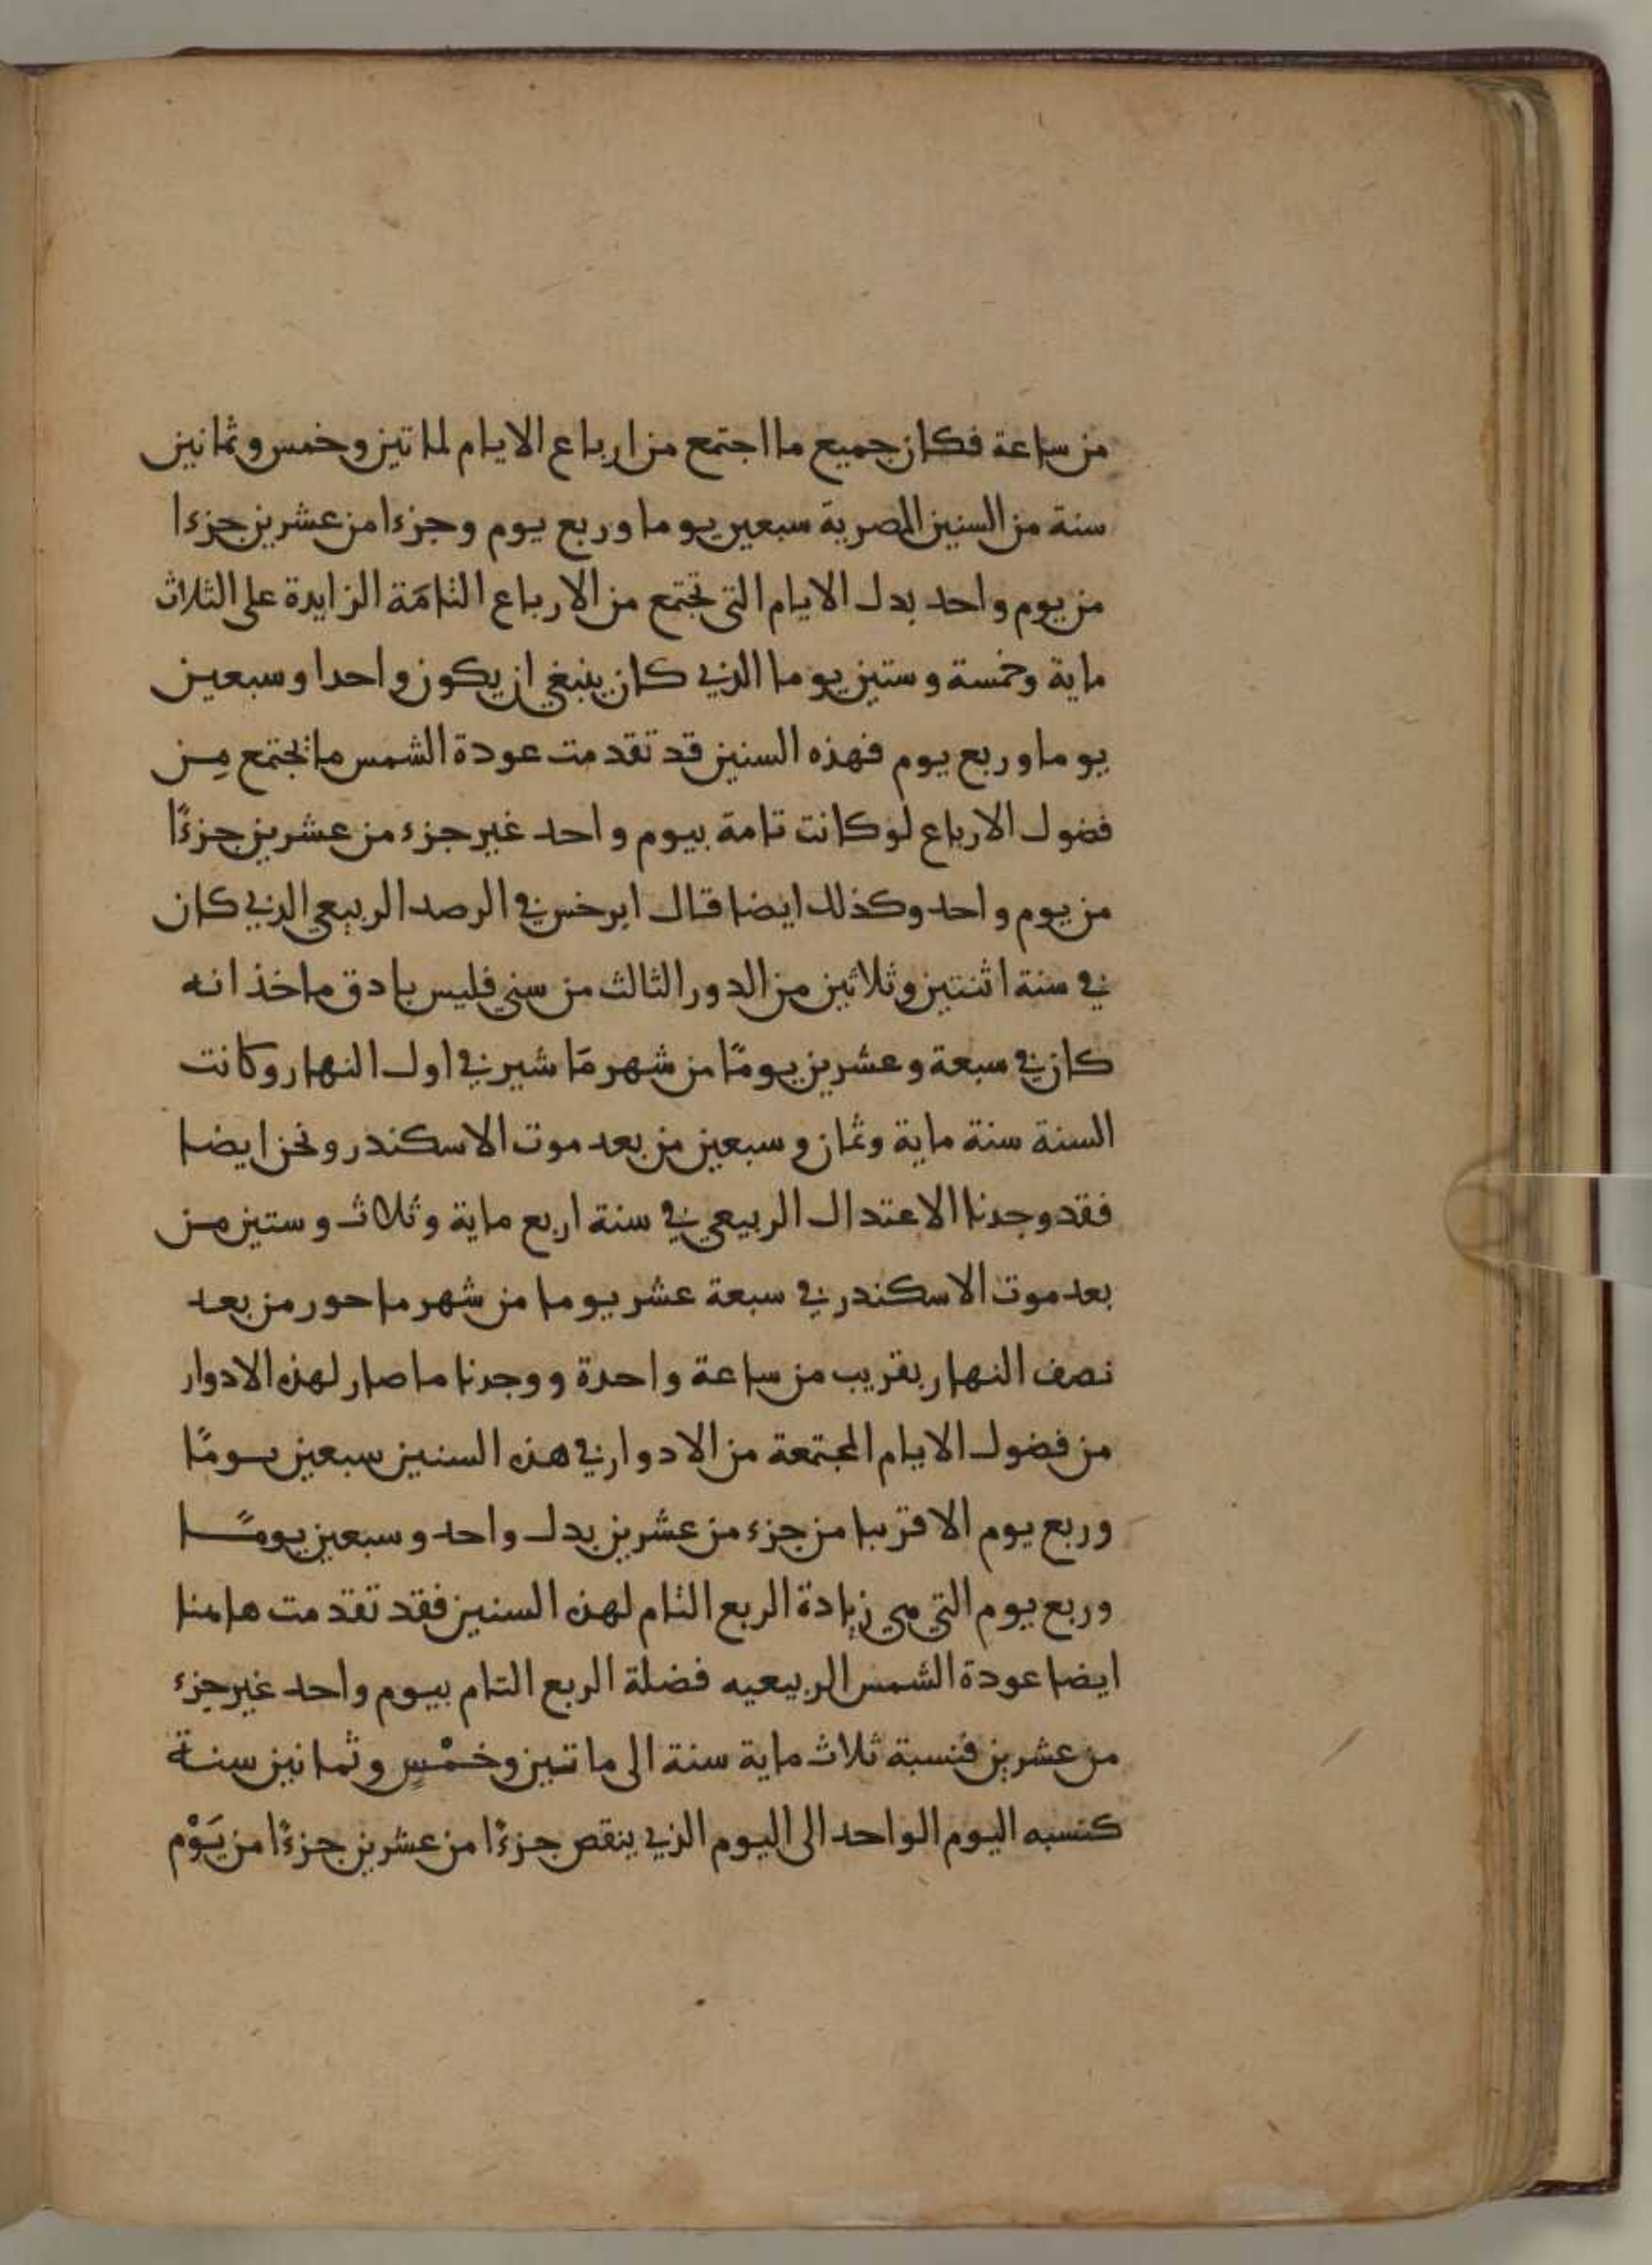 من ساعة فكان جميع ما اجتمع من ارباع الايام لماتين وخمس وثمانين
سنة من السنين المصرية سبعين يوما وربع يوم وجزءا من عشرين جزءا
من يوم واحد بدل الايام التي تجتمع من الارباع التامَة الزايدة على الثلاث
ماية وخمسة وستين يوما الذي كان ينبغي ان يكون واحدا وسبعين
يوما وربع يوم فهذه السنين قد تقدمت عودة الشمس ما تجتمع مِن
فضول الارباع لو كانت تامة بيوم واحد غير جزء من عشرين جزءًا
من يوم واحد وكذلك ايضا قال ابرخس في الرصد الربيعي الذي كان
في سنة اثنتين وثلاثين من الدور الثالث من سني فليس بادق ماخذ انه
كان في سبعة وعشرين يومًا من شهر مَاشير في اول النهار وكانت
السنة سنة ماية وثمان وسبعين من بعد موت الاسكندر ونحن ايضا
فقد وجدنا الاعتدال الربيعي في سنة اربع ماية وثلاث وستين من
بعد موت الاسكندر في سبعة عشر يوما من شهر ماحور من بعد
نصف النهار بقريب من ساعة واحدة ووجدنا ما صار لهذه الادوار
من فضول الايام المجتمعة من الادوار في هذه السنين سبعين يومًا
وربع يوم الا قريبا من جزء من عشرين بدل واحد وسبعين يومًا
وربع يوم التي هي زيادة الربع التام لهذه السنين فقد تقدمت هاهنا
ايضا عودة الشمس الربيعيه فضلة الربع التام بيوم واحد غير جزء
من عشرين فنسبة ثلاث ماية سنة الى ماتين وخمْسٍ وثمانين سنة
كنسبه اليوم الواحد الى اليوم الذي ينقص جزءًا من عشرين جزءًا من يَوْم